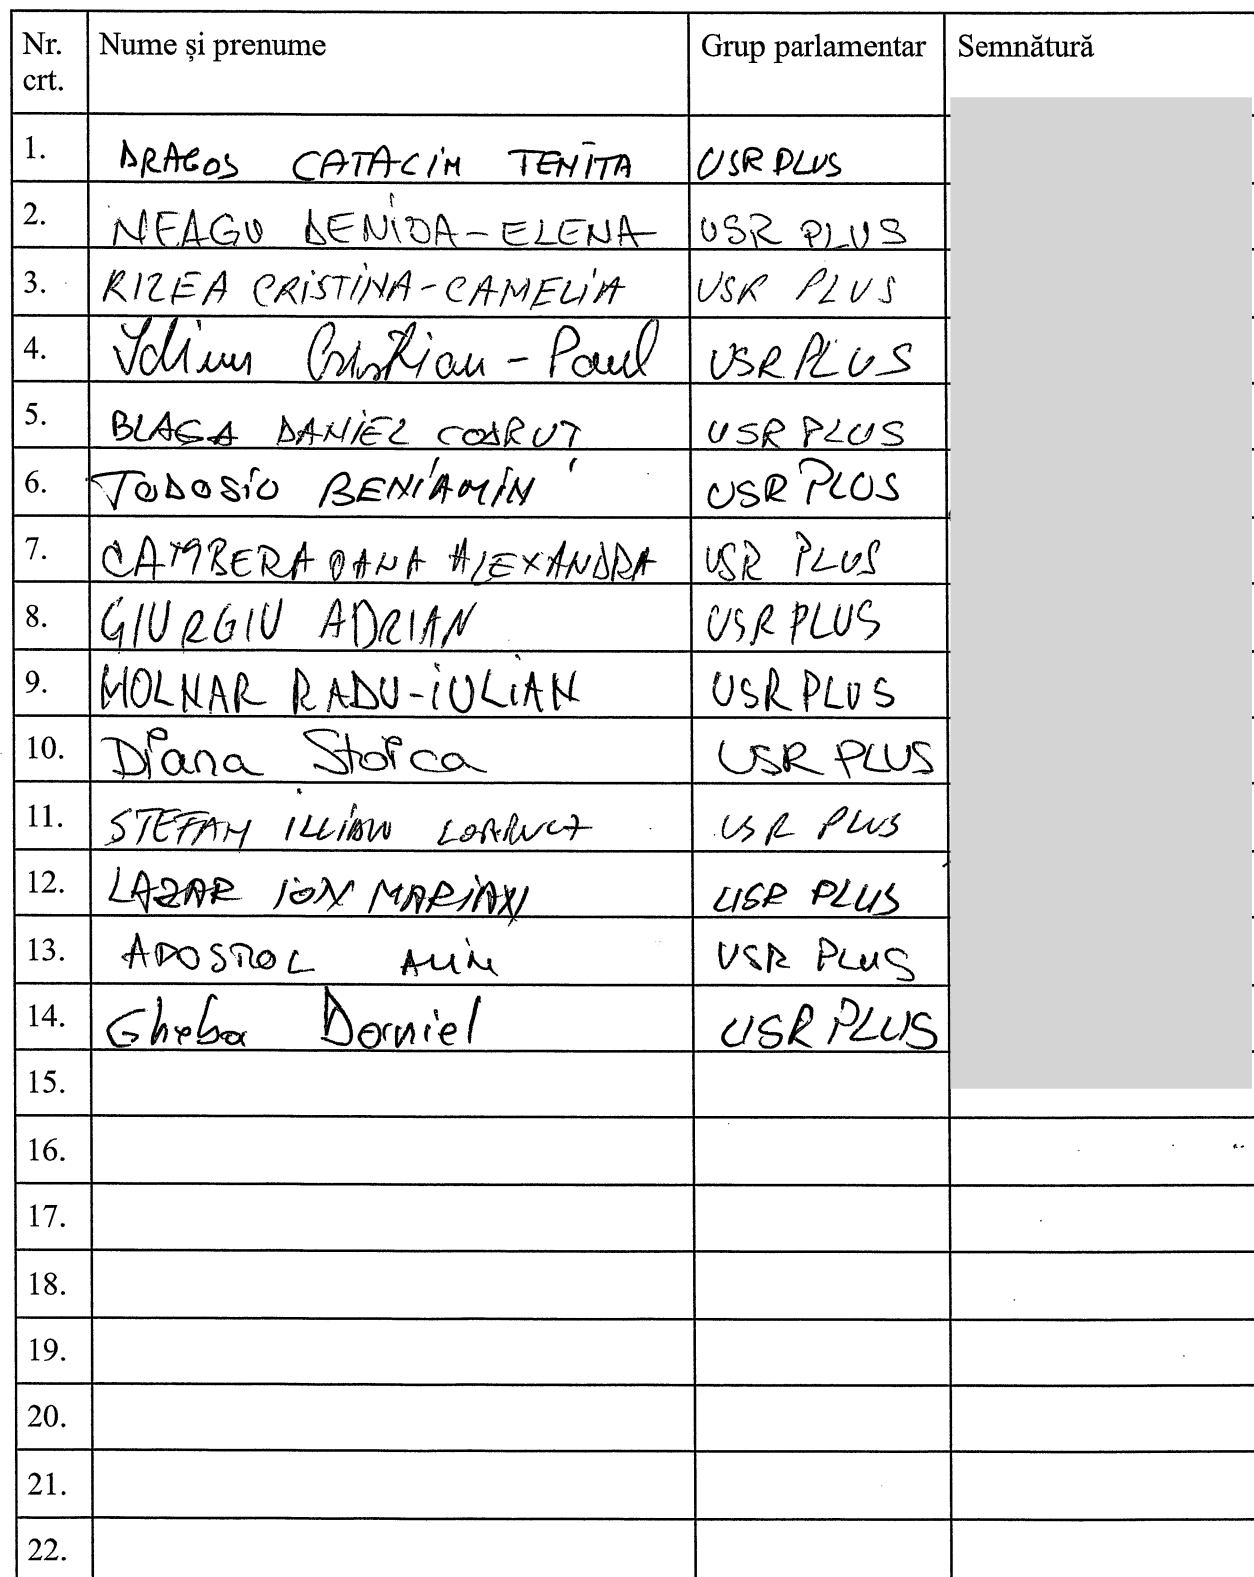 Nr. crt. Nume și prenume Grup parlamentar Semnătură
1. DRAGOS CATALIN TENITA USR PLUS
2. NEAGU DENISA-ELENA USR PLUS
3. RIZEA CRISTINA-CAMELIA USR PLUS
4. Cristian-Paul USR PLUS
5. BLAGA DANIEL CODRUT USR PLUS
6. TODOSIU BENIAMIN USR PLUS
7. CAMBERA OANA ALEXANDRA USR PLUS
8. GIURGIU ADRIAN USR PLUS
9. MOLNAR RADU-IULIAN USR PLUS
10. Diana Stoica USR PLUS
11. STEFAN USR PLUS
12. LAZAR ION MARIAN USR PLUS
13. APOSTOL ALIN USR PLUS
14. Gheba Daniel USR PLUS
15.
16.
17.
18.
19.
20.
21.
22.